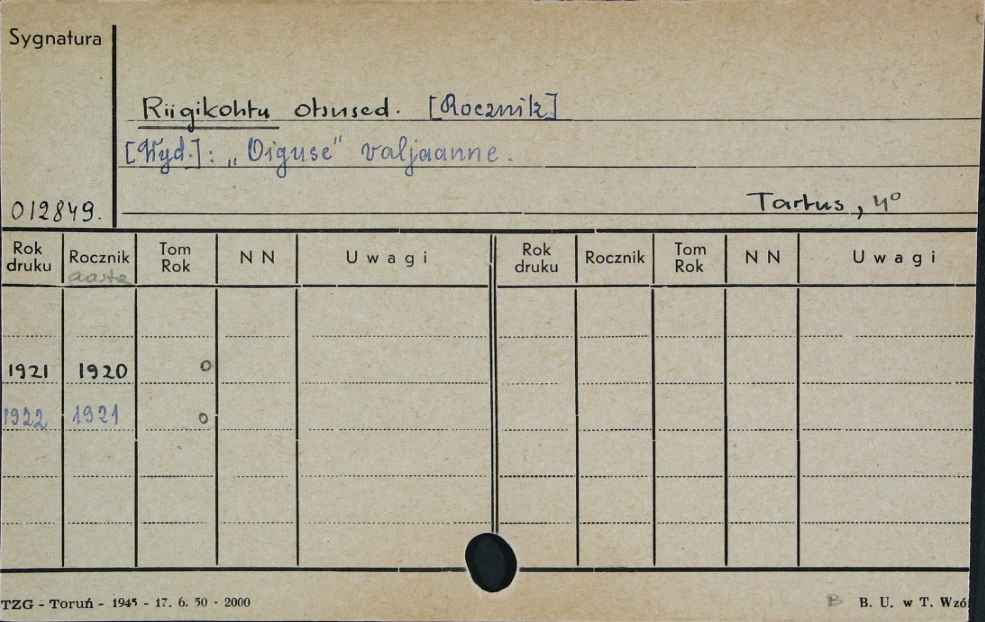 Sygnatura
Riigikohtu otsused. [Rocznik]
[Wyd.]: „Oiguse" valjaanne.
012849.
Tartus, 4⁰
Rok druku Rocznik Tom Rok N N Uwagi Rok druku Rocznik Tom Rok N N Uwagi
aasta
1921 1920 o
1922 1921 o
TZG - Toruń - 1945 - 17. 6. 50 - 2000 B B. U. w T. Wzó